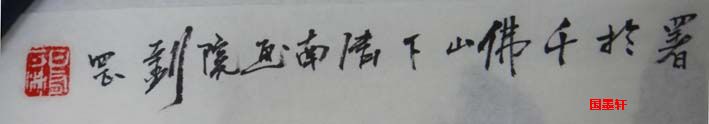 署於千佛山下济南画院刘罡
国墨轩